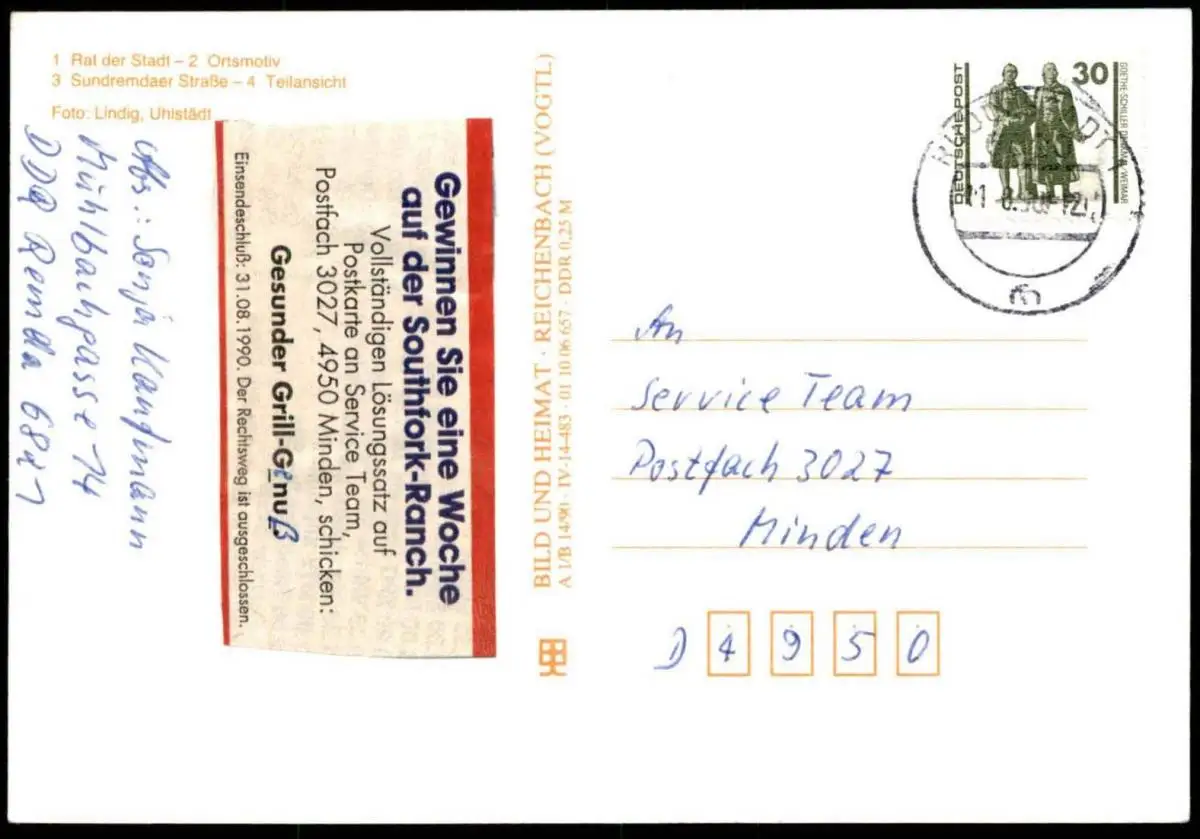 1 Rat der Stadt – 2 Ortsmotiv
3 Sundremdaer Straße – 4 Teilansicht
Foto: Lindig, Uhlstädt
Abs.: Sonja Kaufmann
Mühlbachgasse 14
DDR Remda 6821
Gewinnen Sie eine Woche
auf der Southfork-Ranch.
Vollständigen Lösungssatz auf
Postkarte an Service Team,
Postfach 3027, 4950 Minden, schicken:
Gesunder Grill-Genuß
Einsendeschluß: 31.08.1990. Der Rechtsweg ist ausgeschlossen.
BILD UND HEIMAT · REICHENBACH (VOGTL)
A 1/B 14/90 · IV-14-483 · 01 10 06 657 · DDR 0,25 M
DEUTSCHE POST
30
An
Service Team
Postfach 3027
Minden
D 4950